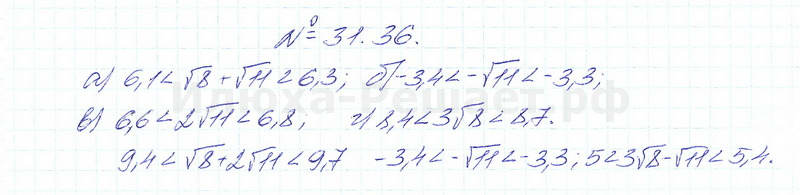 № 31.36.
а) 6,1<√8+√11<6,3; б) -3,4<-√11<-3,3;
в) 6,6<2√11<6,8; г) 8,4<3√8<8,7.
9,4<√8+2√11<9,7 -3,4<-√11<-3,3; 5<3√8-√11<5,4.
Илюха-Решает.рф